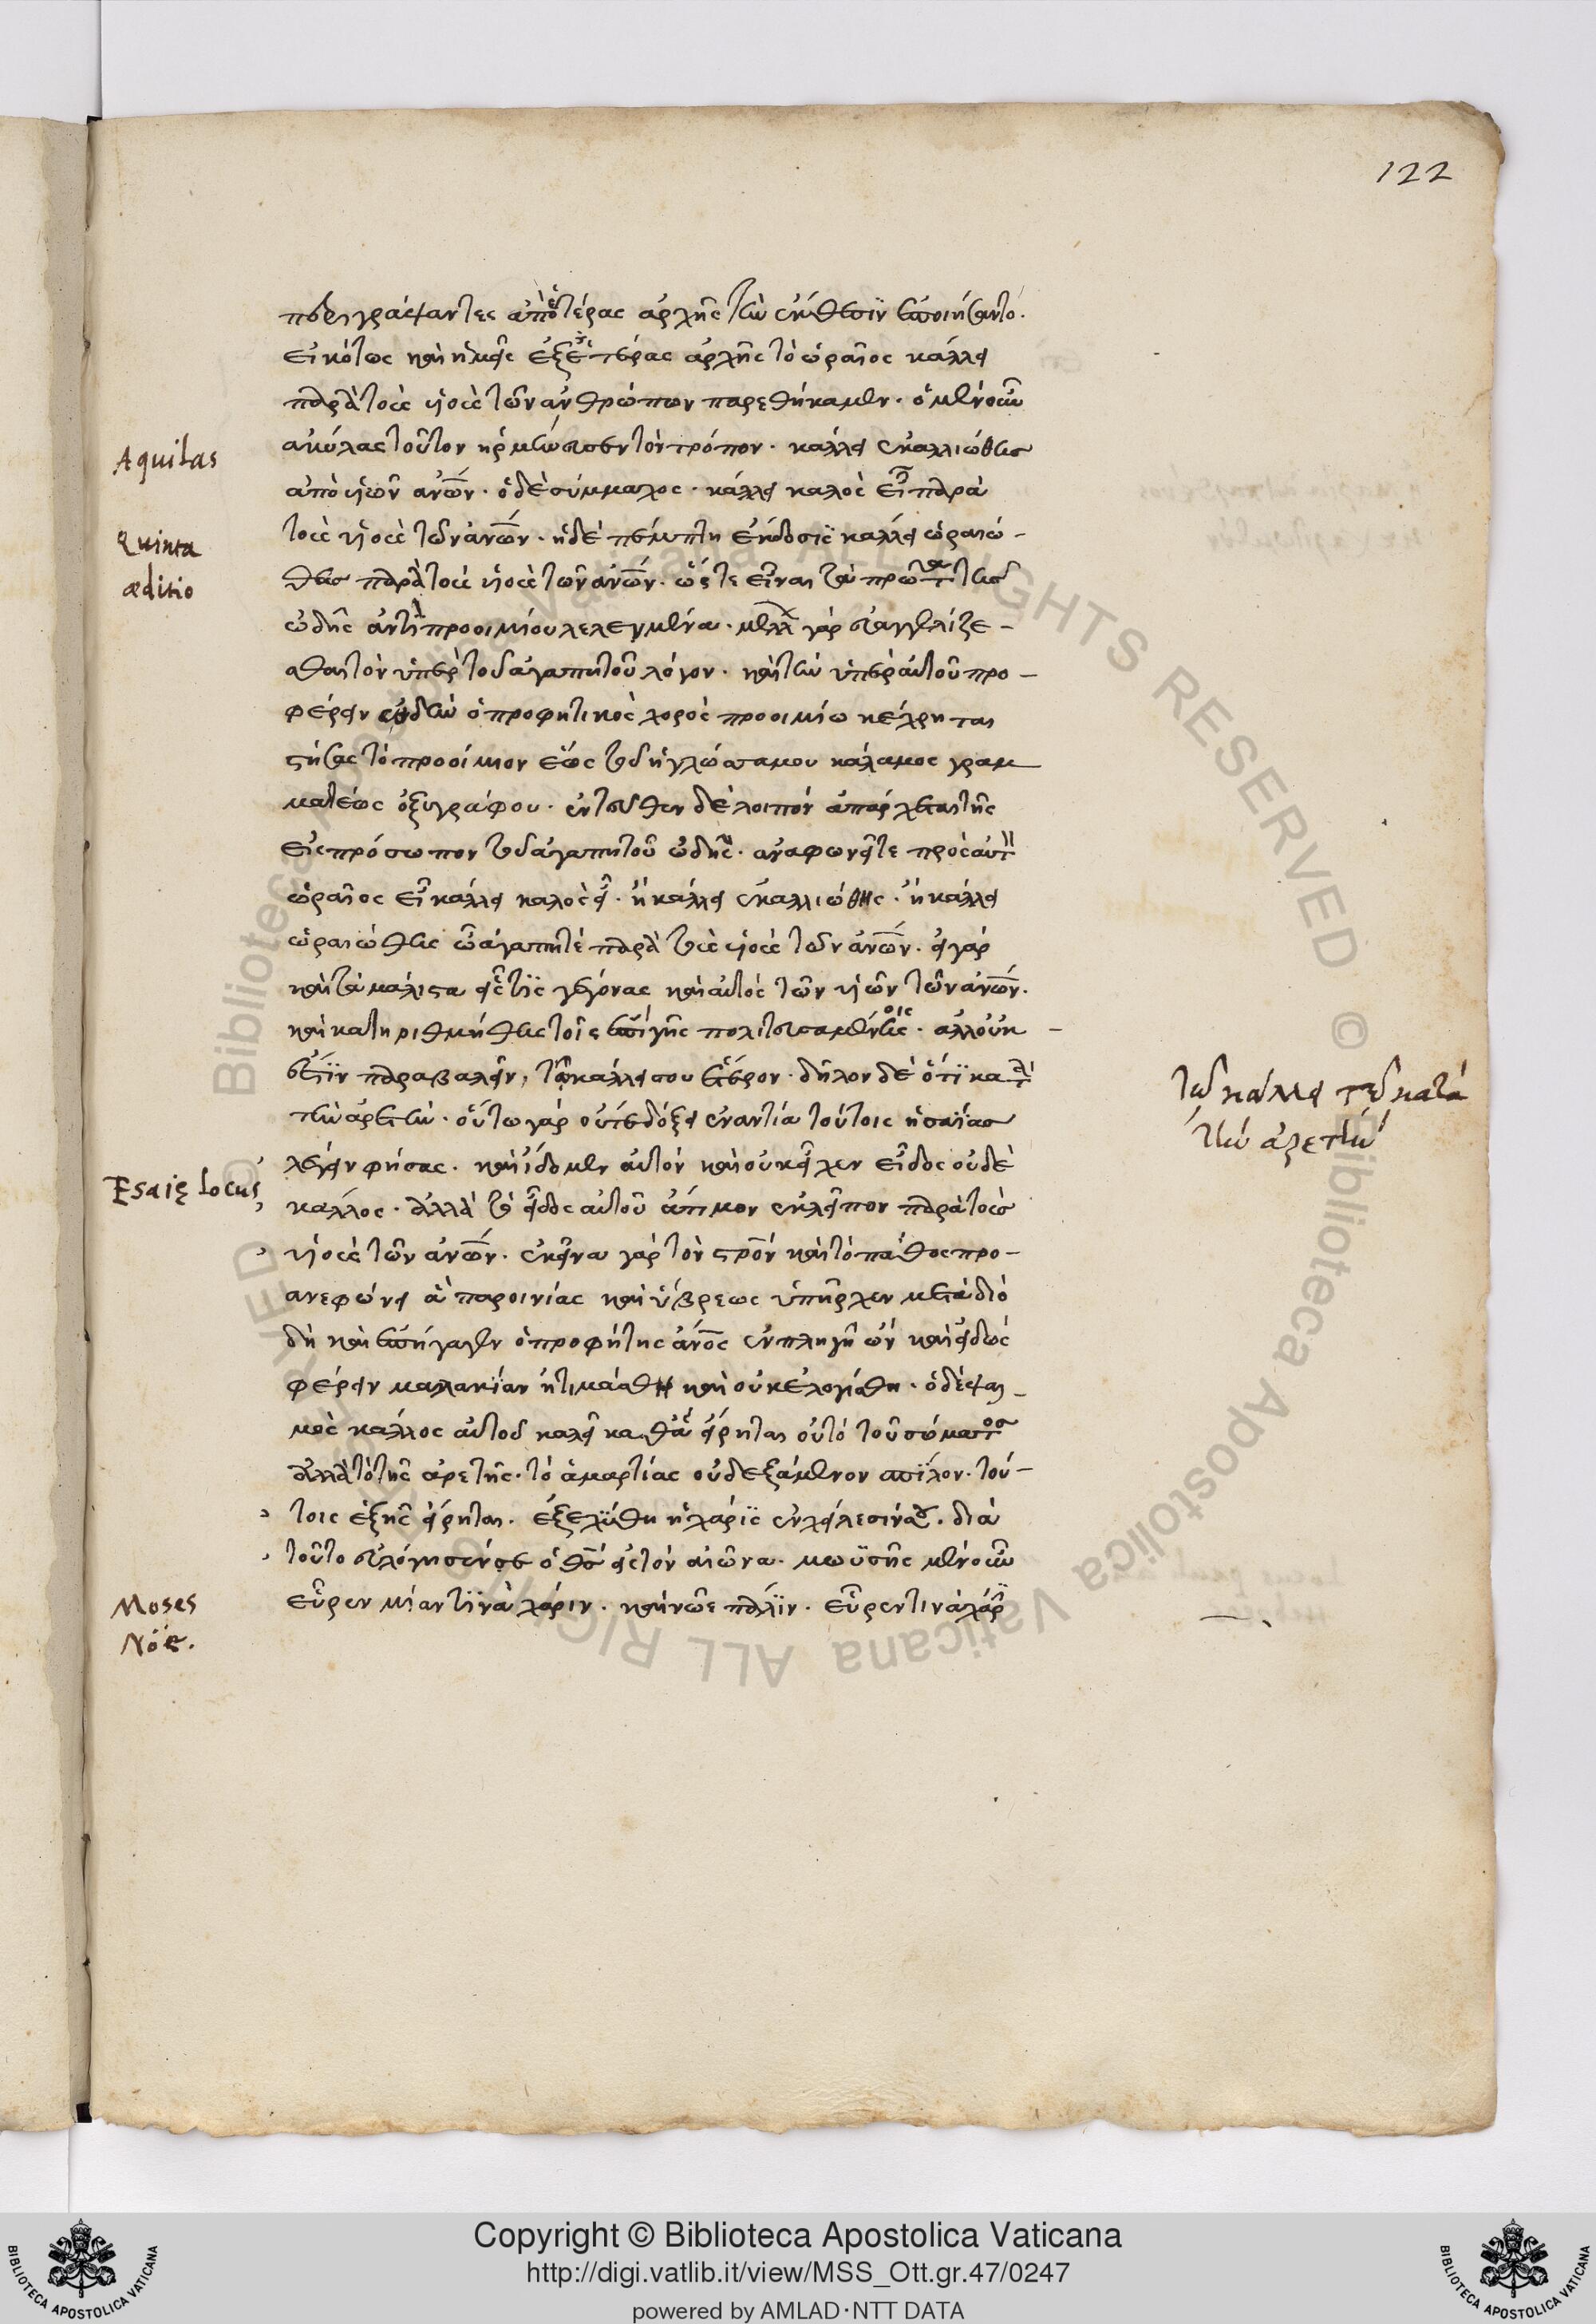 122
περιγράψαντες ἀπὸ ἑτέρας ἀρχῆς τὴν ἔκθεσιν ἐποιήσαντο.
εἰκότως καὶ ἡμεῖς ἐξ ἑτέρας ἀρχῆς τὸ ὡραῖος κάλλει
παρὰ τοὺς υἱοὺς τῶν ἀνθρώπων παρεθήκαμεν. ὁ μὲν οὖν
Aquilas
ἀκύλας τοῦτον ἡρμήνευσεν τὸν τρόπον. κάλλει ἐκαλλιώθης
ἀπὸ υἱῶν ἀνῶν. ὁ δὲ σύμμαχος. κάλλει καλὸς εἶ παρὰ
Quinta
æditio
τοὺς υἱοὺς τῶν ἀνῶν. ἡ δὲ πέμπτη ἔκδοσις κάλλει ὡραιώ-
θης παρὰ τοὺς υἱοὺς τῶν ἀνῶν. ὥστε εἶναι τὰ πρῶτα τῆς
ὠδῆς ἀντὶ προοιμίου λελεγμένα. μέλλων γὰρ εὐαγγελίζε-
σθαι τὸν ὑπὲρ τοῦ ἀγαπητοῦ λόγον. καὶ τὴν ὑπὲρ αὐτοῦ προ-
φέρειν ᾠδὴν ὁ προφητικὸς χορὸς προοιμίω κέχρηται
στήσας τὸ προοίμιον ἕως τοῦ ἡ γλῶσσα μου κάλαμος γραμ
ματέως ὀξυγράφου. ἐντεῦθεν δὲ λοιπὸν ἀπάρχεται τῆς
εἰς πρόσωπον τοῦ ἀγαπητοῦ ὠδῆς. ἀναφωνεῖ τε πρὸς αὐτὸν
ὡραῖος εἶ κάλλει καλὸς εἶ. ἢ κάλλει ἐκαλλιώθης. ἢ κάλλει
ὡραιώθης ὦ ἀγαπητὲ παρὰ τοὺς υἱοὺς τῶν ἀνῶν. εἰ γὰρ
καὶ τὰ μάλιστα εἷς τις γέγονας καὶ αὐτὸς τῶν υἱῶν τῶν ἀνῶν.
καὶ κατηριθμήθης τοῖς ἐπὶ γῆς πολιτευσαμένοις. ἀλλ' οὐκ -
ἔστιν παραβαλεῖν, τῶ κάλλει σου ἕτερον. δῆλον δὲ ὅτι κατὰ
τῶ κάλλει τῶ κατὰ
τὴν ἀρετὴν
τὴν ἀρετήν. οὕτω γὰρ οὔτε δόξει ἐναντία τούτοις ἡσαΐας
Esaię locus
λέγειν φήσας. καὶ ἴδομεν αὐτὸν καὶ οὐκ εἶχεν εἶδος οὐδὲ
κάλλος. ἀλλὰ τὸ εἶδος αὐτοῦ ἄτιμον ἐκλεῖπον παρὰ τοὺς
υἱοὺς τῶν ἀνῶν. ἐκεῖνα γὰρ τὸν στρὸν καὶ τὸ πάθος προ-
ανεφώνει ἃ παροινίας καὶ ὕβρεως ὑπῆρχεν μεστά διὸ
δὴ καὶ ἐπήγαγεν ὁ προφήτης ἄνος ἐν πληγῆ ὢν καὶ εἰδὼς
φέρειν μαλακίαν ἠτιμάσθη καὶ οὐκ ἐλογίσθη. ὁ δὲ ψαλ-
μὸς κάλλος αὐτοῦ καλεῖ καθὰ εἴρηται οὐ τὸ τοῦ σώματος
ἀλλὰ τὸ τῆς ἀρετῆς. τὸ ἁμαρτίας οὐ δεξάμενον σπῖλον. τού-
τοις ἑξῆς εἴρηται. ἐξεχύθη ἡ χάρις ἐν χείλεσίν σου. διὰ
τοῦτο εὐλόγησέν σε ὁ θσ εἰς τὸν αἰῶνα. μωϋσῆς μὲν οὖν
Moses
εὗρεν μίαν τινὰ χάριν. καὶ νῶε πάλιν. εὗρεν τινὰ χάριν
Νόε.
Copyright © Biblioteca Apostolica Vaticana
http://digi.vatlib.it/view/MSS_Ott.gr.47/0247
powered by AMLAD·NTT DATA